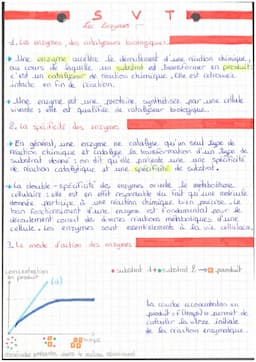 S V T
Les Enzymes
1. Les enzymes, des catalyseurs biologiques.
Une enzyme accélère le déroulement d'une réaction chimique,
au cours de laquelle un substrat est transformé en produit
c'est un catalyseur de réaction chimique. Elle est retrouvée
intacte en fin de réaction.
Une enzyme est une protéine, synthétisée par une cellule
vivante : elle est qualifiée de catalyseur biologique.
2. La spécificité des enzymes
En général, une enzyme ne catalyse qu'un seul type de
réaction chimique et catalyse la transformation d'un type de
substrat donné : on dit qu'elle présente une spécificité
de réaction catalytique et une spécificité de substrat.
La double-spécificité des enzymes oriente le métabolisme
cellulaire : elle est en effet responsable du fait qu'une molécule
donnée participe à une réaction chimique bien précise. Le
bon fonctionnement d'une enzyme est fondamental pour le
déroulement correct des diverses réactions métaboliques d'une
cellule. Les enzymes sont essentielles à la vie cellulaire.
3. Le mode d'action des enzymes
concentration
en produit
substrat 1 + substrat 2 → produit
La courbe concentration en
produit = f(temps) permet de
calculer la vitesse initiale
de la réaction enzymatique
temps